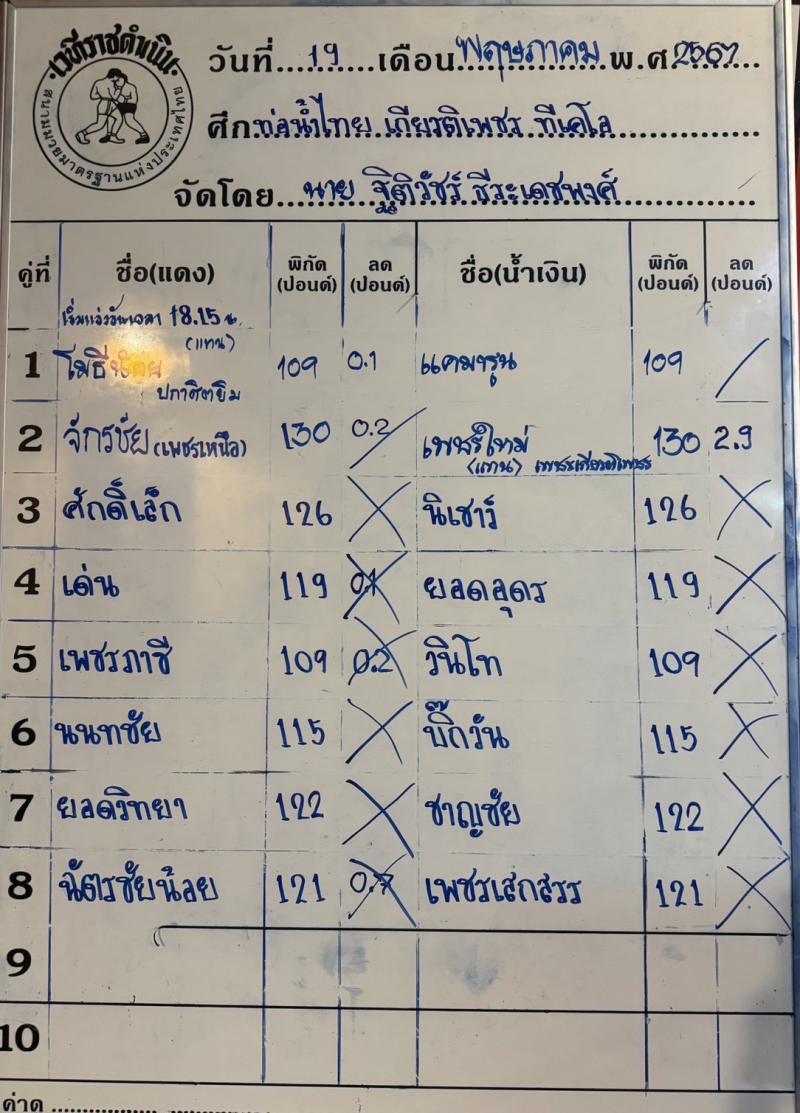 เวทีราชดำเนิน
สนามมวยมาตรฐานแห่งประเทศไทย
วันที่....19....เดือนพฤษภาคม พ.ศ 2567
ศึกท่อน้ำไทย เกียรติเพชร ทีเคโอ
จัดโดย...นาย ฐิติวัชร์ ธีระเดชพงศ์
คู่ที่ ชื่อ(แดง) พิกัด (ปอนด์) ลด (ปอนด์) ชื่อ(น้ำเงิน) พิกัด (ปอนด์) ลด (ปอนด์)
เริ่มแข่งขันเวลา 18.15 น.
(แทน)
1 109 0.1 แคมารูน 109
ปกาศิตยิม
2 จักรชัย (เพชรเหนือ) 130 0.2 เพชรใหม่ 130 2.9
(แทน) เพชรเกียรติเพชร
3 ศักดิ์เล็ก 126 นิเชาว์ 126
4 เด่น 119 0.1 ยอดอุดร 119
5 เพชรภาชี 109 0.2 วินโท 109
6 นนทชัย 115 บิ๊กวัน 115
7 ยอดวิทยา 122 ชาญชัย 122
8 ฉัตรชัยน้อย 121 เพชรเสกสรร 121
9
10